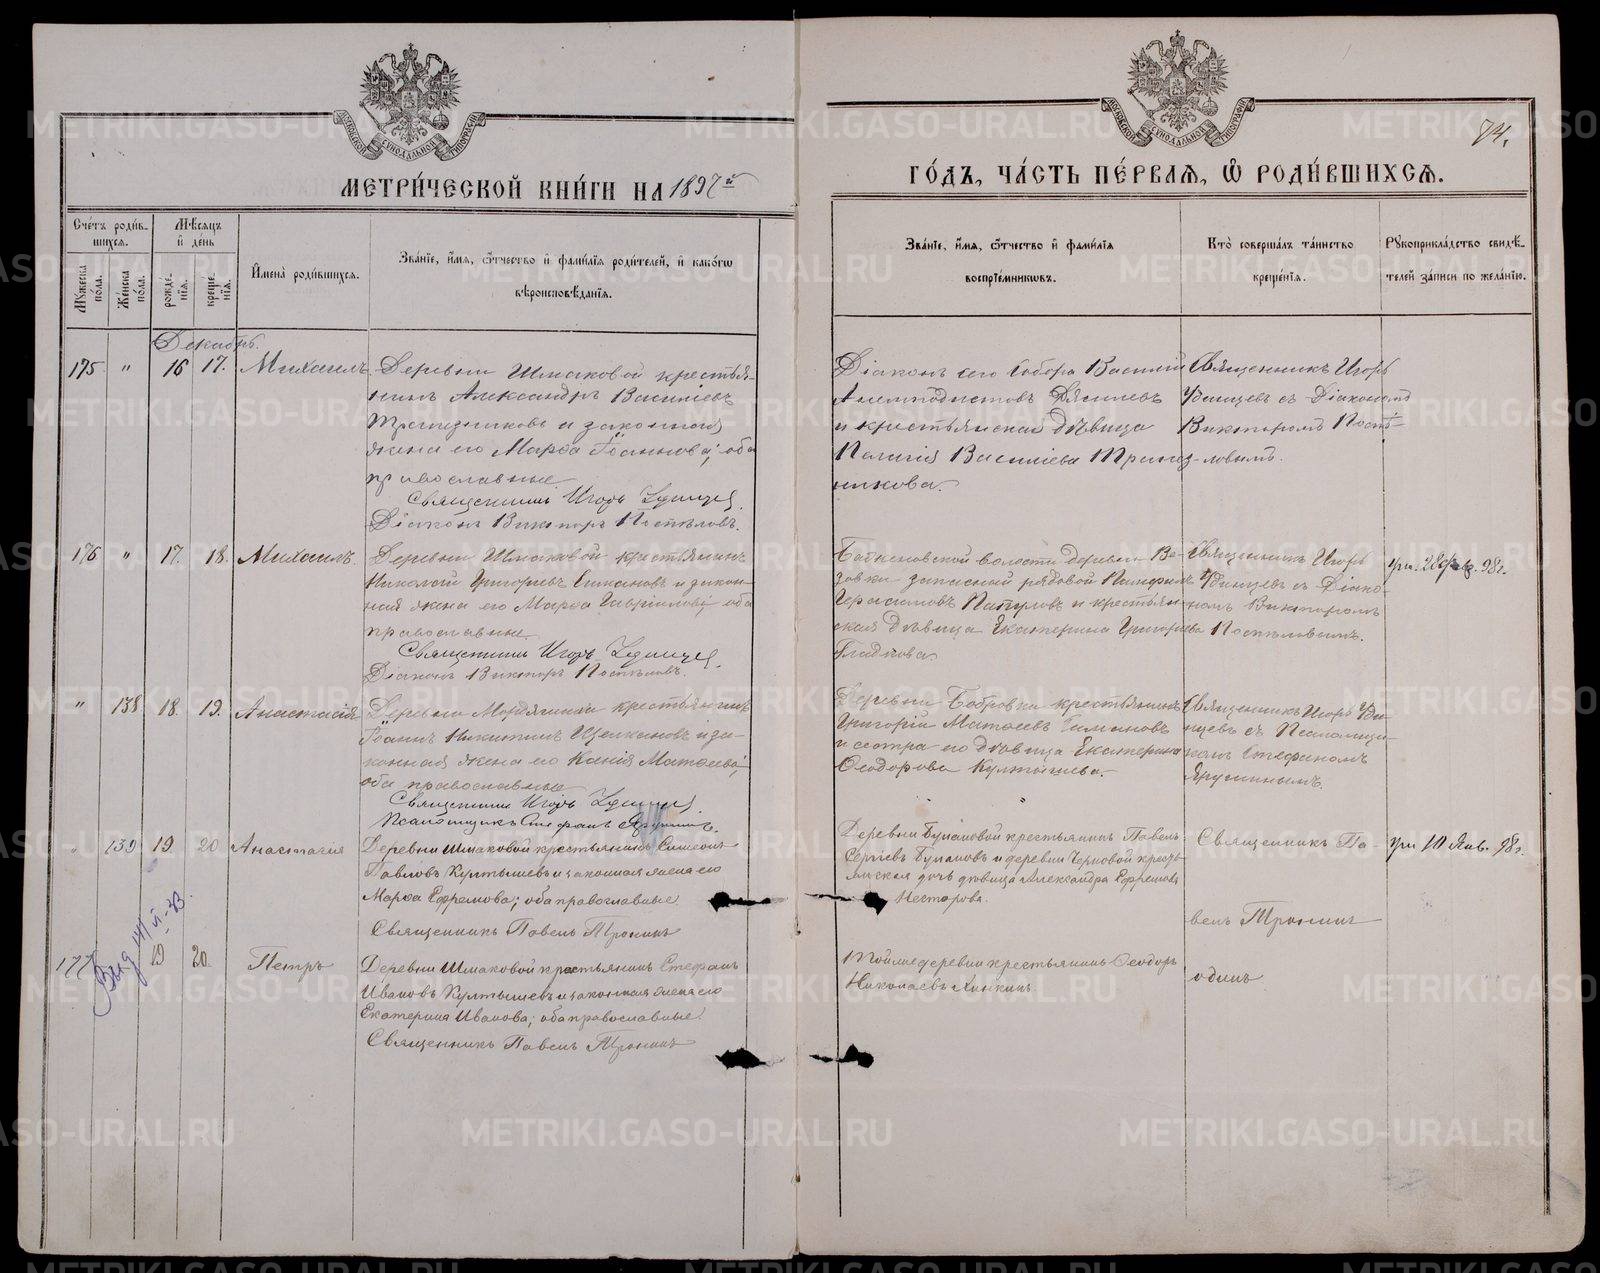 МЕТРИ́ЧЕСКОЙ КНИ́ГИ НА 1897й
Сче́тъ роди́в-
шихся.
Мѣ́сяцъ
и҆ де́нь
Му́жеска
по́ла.
Же́нска
по́ла.
рожде́-
нїя.
креще́-
нїя.
И҆мена̀ роди́вшихся.
Зва́нїе, и҆́мя, ѻ҆́тчество и҆ фами́лїя роди́телей, и҆ како́гѡ
вѣроисповѣ́данїя.
Декабрь.
175 " 16 17. Михаилъ
Деревни Шмаковой крестья-
нинъ Александръ Василіевъ
Трапезниковъ и законная
жена его Марѳа Іоаннова; оба
православные
Священникъ Игорь
Діаконъ Викторъ Поспѣловъ.
176 " 17. 18. Михаилъ.
Деревни Шмаковой крестьянинъ
Николай Григорьевъ и закон-
ная жена его Марѳа Гавріилова; оба
православные.
Священникъ Игорь
Діаконъ Викторъ Поспѣловъ.
" 138 18. 19. Анастасія
Деревни Мордяшиной крестьянинъ
Іоаннъ Никитинъ Щелкановъ и за-
конная жена его Ксенія Матѳеева;
оба православные
Священникъ Игорь
Псаломщикъ Стефанъ Ярушинъ.
" 139 19 20 Анастасія
Деревни Шмаковой крестьянинъ Симеонъ
Павловъ Култышевъ и законная жена его
Марѳа Ефремова; оба православные
Священникъ Павелъ Тронинъ
177 19 20. Петръ
Деревни Шмаковой крестьянинъ Стефанъ
Ивановъ Култышевъ и законная жена его
Екатерина Иванова; оба православные
Священникъ Павелъ Тронинъ
ГО́ДЪ, ЧА́СТЬ ПЕ́РВАЯ, Ѡ҆ РОДИ́ВШИХСЯ.
74.
Зва́нїе, и҆́мя, ѻ҆́тчество и҆ фами́лїя
воспрїе́мниковъ.
Кто̀ соверша́лъ та́инство
креще́нїя.
Рꙋкоприкла́дство свидѣ́-
телей за́писи по жела́нїю.
Діаконъ сего Собора Василій
Анемподистовъ Дягилевъ
и крестьянская дѣвица
Пелагія Василіева Трапез-
никова.
Священникъ Игорь
Удинцевъ съ Діакономъ
Викторомъ Поспѣ-
ловымъ.
Байкаловской волости деревни
запасный рядовой Панфилъ
Герасимовъ и крестьян-
ская дѣвица Екатерина Григорьева
Гладкова
Священникъ Игорь
Удинцевъ съ Діако-
номъ Викторомъ
Поспѣловымъ.
98 г.
Деревни Бобровки крестьянинъ
Григорій Матѳеевъ
и сестра его дѣвица Екатерина
Ѳеодорова Култышева.
Священникъ Игорь Уди-
нцевъ съ Псаломщи-
комъ Стефаномъ
Ярушинымъ.
Деревни Булановой крестьянинъ Павелъ
Сергіевъ Булановъ и деревни крестья-
янская дочь дѣвица Александра Ефремова
Нестерова.
Священникъ Па-
велъ Тронинъ
10 Янв. 98 г.
Той же деревни крестьянинъ Ѳеодоръ
Николаевъ
одинъ
METRIKI.GASO-URAL.RU